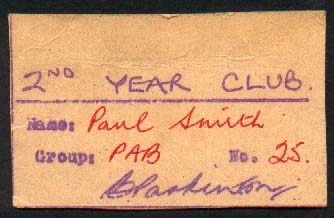 2ND YEAR CLUB.
Name: Paul Smith
Group: PAB No. 25.
B Parkinson